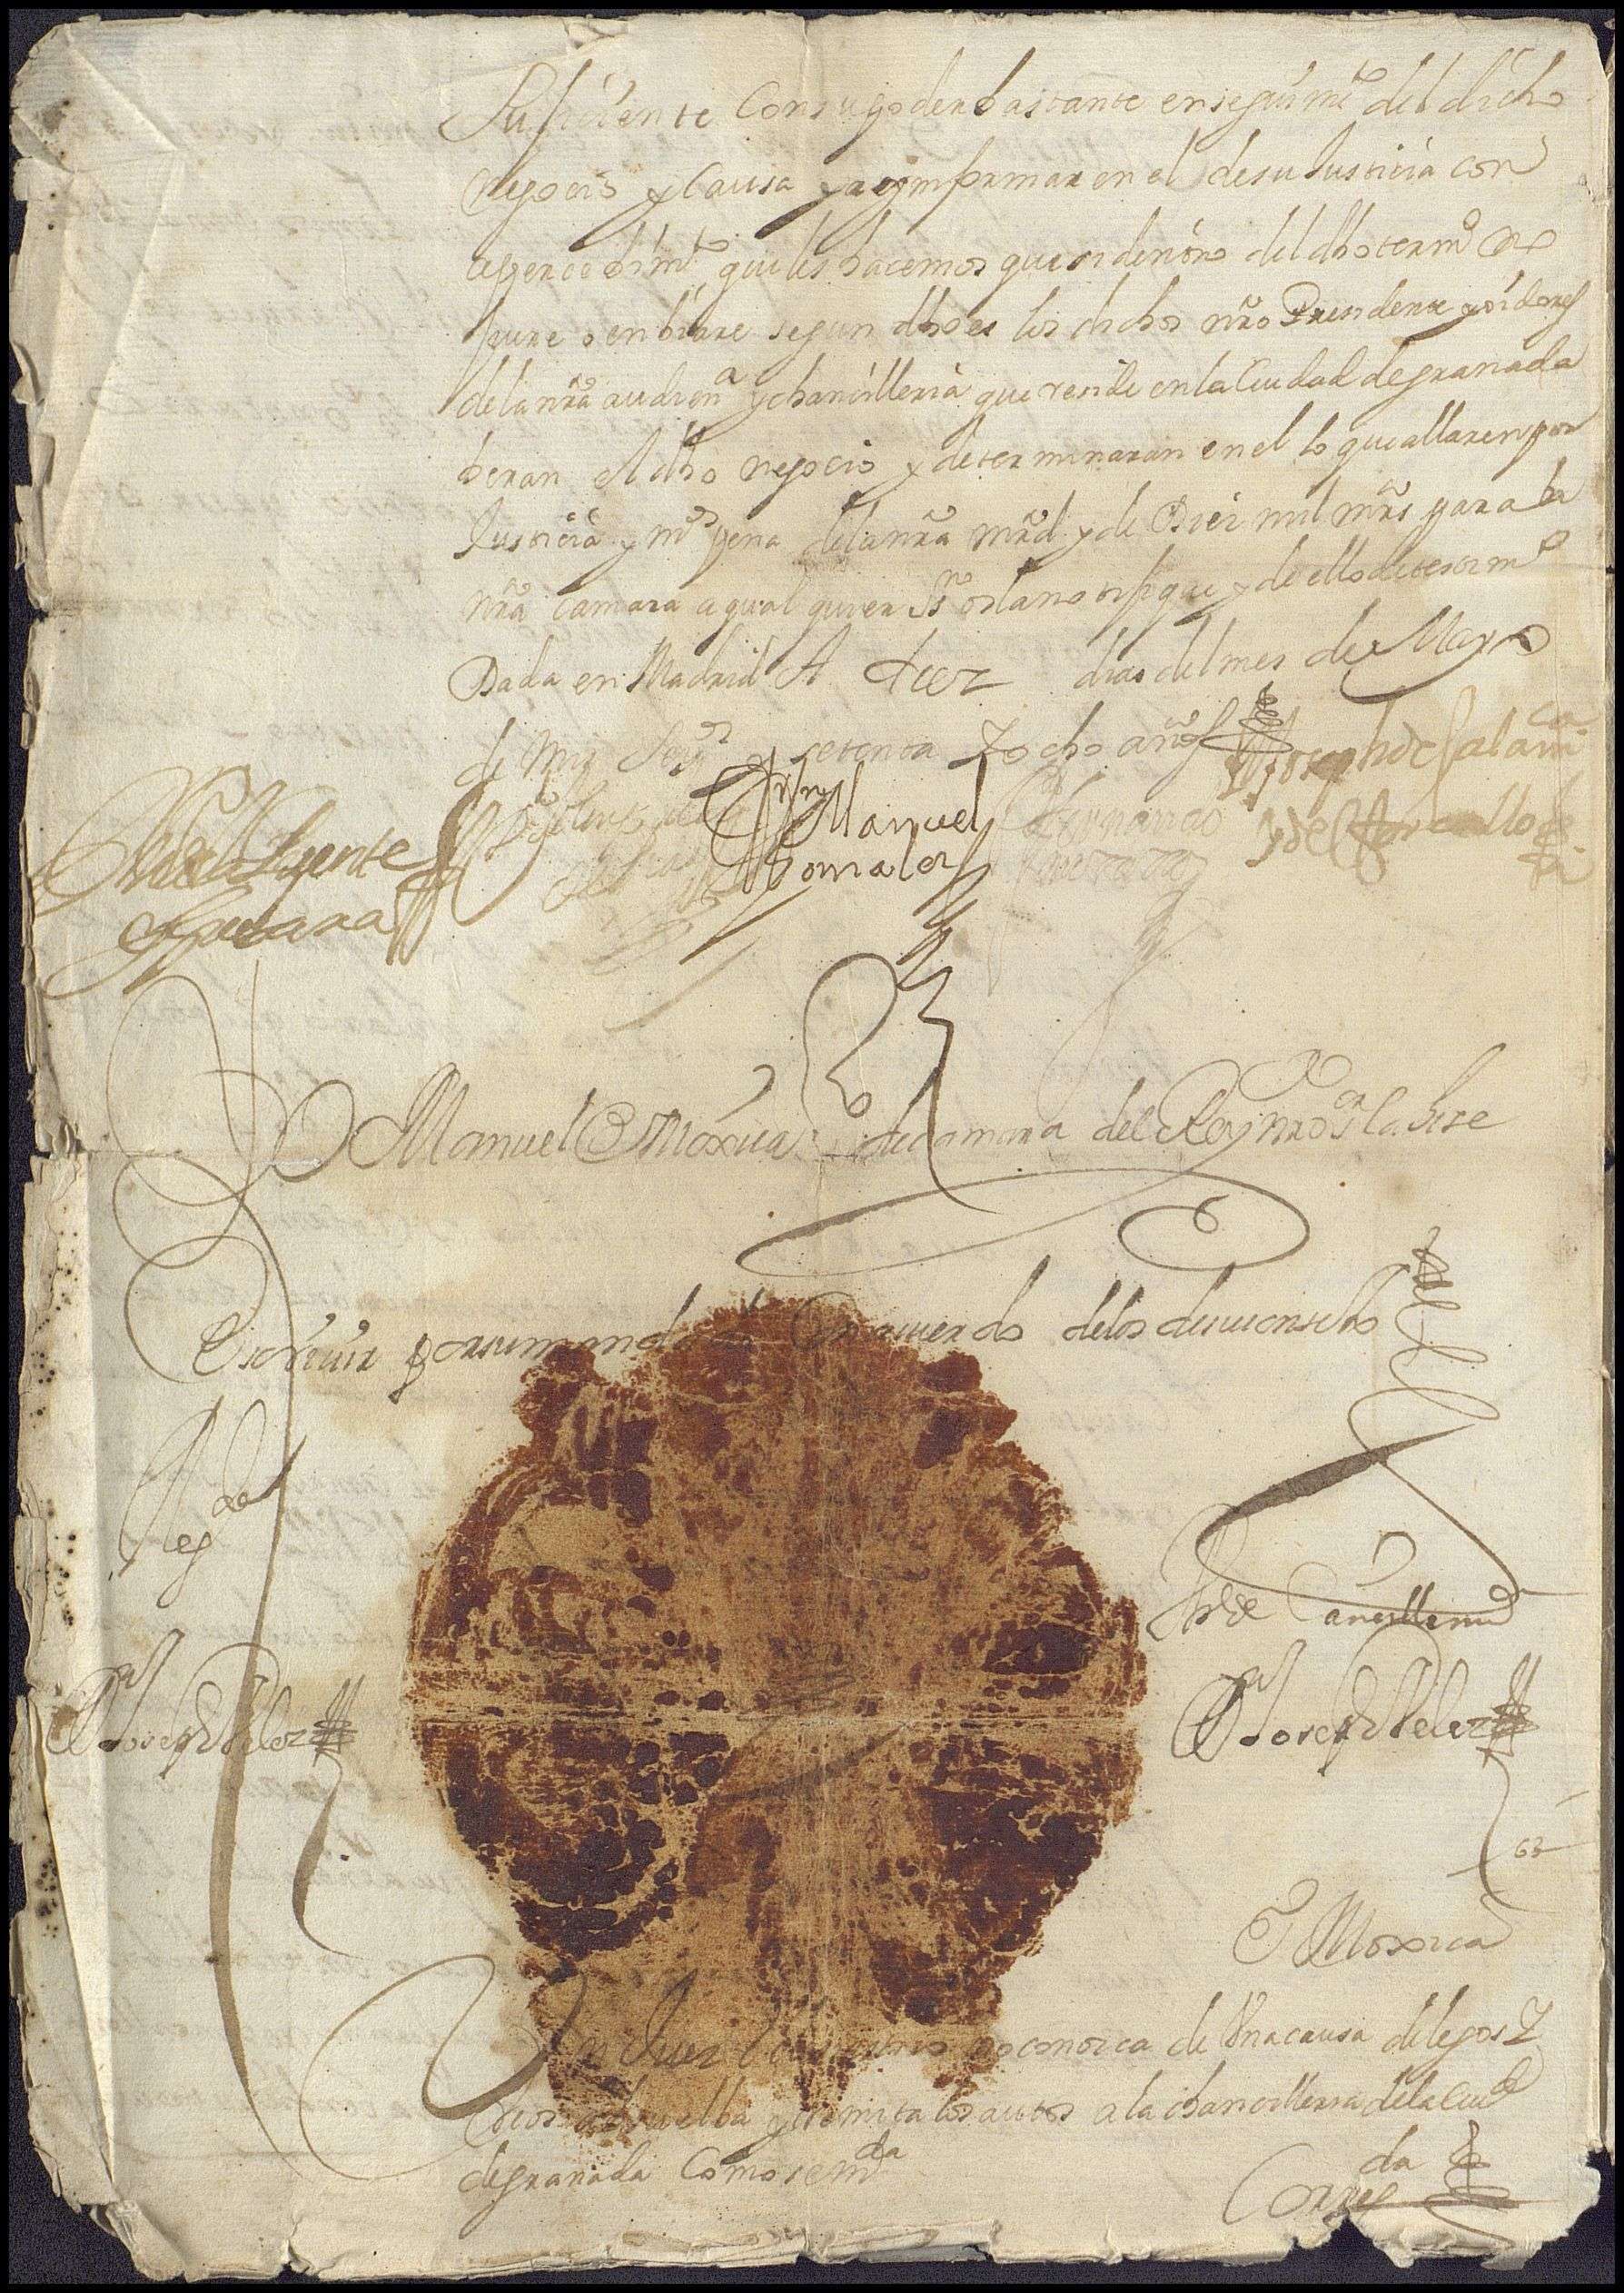 Suficiente Con su poder bastante en seguimto del dicho
negocio y Causa y a ymformar en el de su Justicia con
apercevimto que les hacemos que si dentro del dho termo no
fuere o enbiare segun dho es los dichos nro Presidente y oidores
de la nra audiena y chancilleria que reside en la Ciudad de granada
beran el dho negocio y determinaran en el lo que allaren por
Justicia y m pena de la nra mrd y de Diez mil mrs para la
nra camara a qual quier Ssno os la notifique y de ello de testimo
Dada en Madrid A diez dias del mes de Mayo
de mil Seiso y setenta Y ocho años
Joseph de Salamca
Manuel
Gonzalez
Fernando
de la fuente
Guebara
Yo Manuel de Moxica de camara del Rey nro sr la hize
Escrivir por su mando Con acuerdo de los de su consejo
Regda
The de Canciller mor
Dn Joseph Velez
Dn Joseph Velez
68
So Moxica
Un Juez no conozca de Una causa de legos Y
absuelba y remita los autos a la chancilleria de la Ciud
de granada Como se mda
Corregda